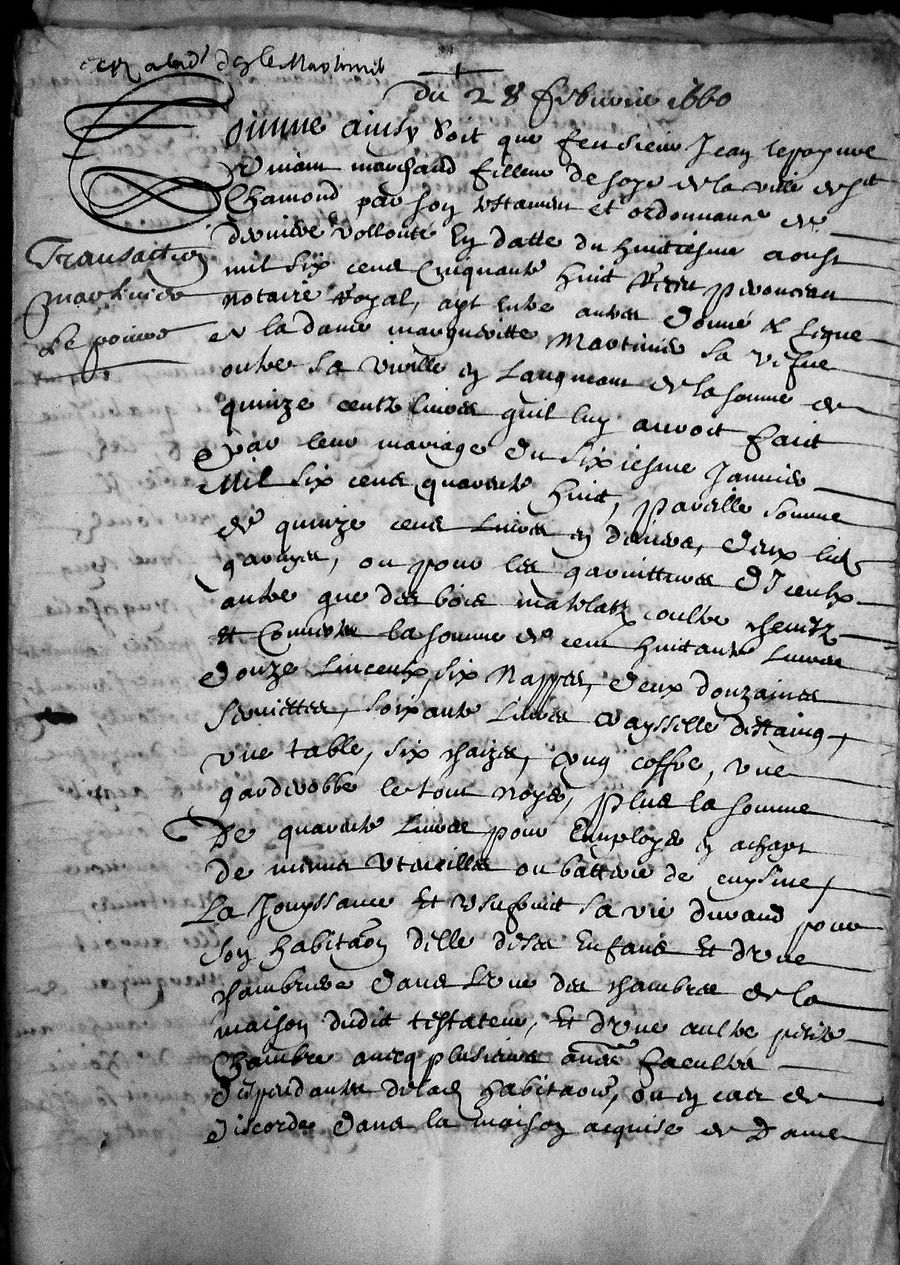 du 28 febvrier 1660
Transaction
Martinier
Lepoivre
Comme ainsy soit que feu sieur Jean lepoyvre
vivant marchand filleur de soye de la ville de st
Chamond par son testament et ordonnance de
derniere vollonte en datte du huitiesme aoust
mil six cens cinquante huit receu
notaire Royal, ayt entre autres donné & legué
a la dame margueritte Martinier sa vefve
outre sa vie en laugment de la somme de
quinze centz livres quil luy auroit fait
par leur mariage du sixiesme Janvier
Mil six cens quarante huit, pareille somme
de quinze cens Livres en deniers, deux lits
garnys, ou pour les garnittures d'Iceux
autre que des bois matelatz coultre chevitz
et Couverte la somme de cent huitante Livres
douze Linceux, six Nappes, deux douzaines
serviettes, soixante Livres vaysselle d'estaing,
une table, six chaizes, ung coffre, une
garderobbe le tout noyer, plus la somme
De quarante Livres pour Employer en achapt
de menus uteucilles ou batterie de cuysine,
La Jouyssance Et usufruit sa vie durand pour
son habitaon d'elle de ses Enfans Et d'une
chambriere dans L'une des chambres de la
maison dudit testateur, Et d'une aultre petite
Chambre avecq plusieurs aues facultes
dependantes de lad habitaon, ou en cas de
discorde dans la maison acquise de Dame